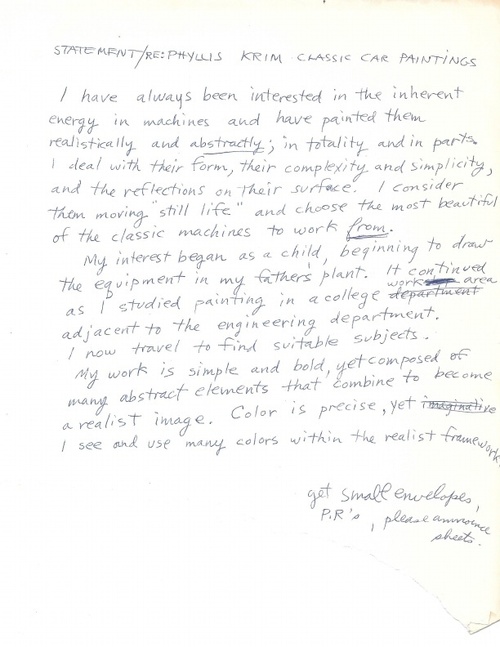 STATEMENT/RE: PHYLLIS KRIM CLASSIC CAR PAINTINGS
I have always been interested in the inherent
energy in machines and have painted them
realistically and abstractly; in totality and in parts.
I deal with their form, their complexity and simplicity,
and the reflections on their surface. I consider
them moving "still life" and choose the most beautiful
of the classic machines to work from.
My interest began as a child, beginning to draw
the equipment in my father's plant. It continued
as I studied painting in a college department work area
adjacent to the engineering department.
I now travel to find suitable subjects.
My work is simple and bold, yet composed of
many abstract elements that combine to become
a realist image. Color is precise, yet imaginative
I see and use many colors within the realist framework.
get small envelopes,
P.R's, please announce
sheets.